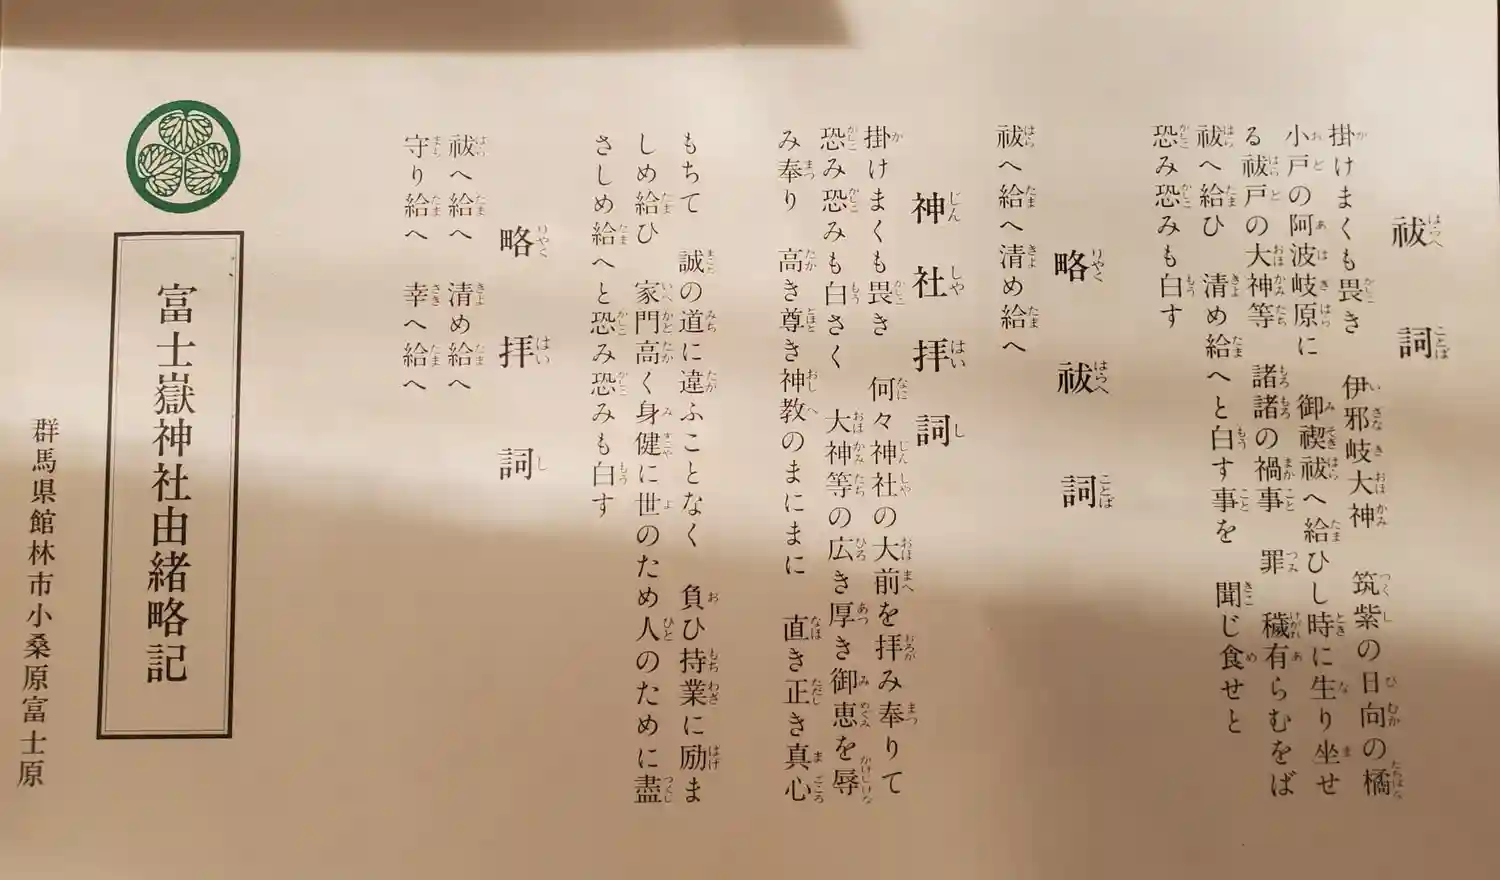 祓詞
掛けまくも畏き　伊邪岐大神　筑紫の日向の橘
小戸の阿波岐原に　御禊祓へ給ひし時に生り坐せ
る祓戸の大神等　諸諸の禍事　罪　穢有らむをば
祓へ給ひ　清め給へと白す事を　聞じ食せと
恐み恐みも白す
略祓詞
祓へ給へ清め給へ
神社拝詞
掛けまくも畏き　何々神社の大前を拝み奉りて
恐み恐みも白さく　大神等の広き厚き御恵を辱
み奉り　高き尊き神教のまにまに　直き正き真心
もちて　誠の道に違ふことなく　負ひ持業に励ま
しめ給ひ　家門高く身健に世のため人のために盡
さしめ給へと恐み恐みも白す
略拝詞
祓へ給へ　清め給へ
守り給へ　幸へ給へ
富士嶽神社由緒略記
群馬県館林市小桑原富士原